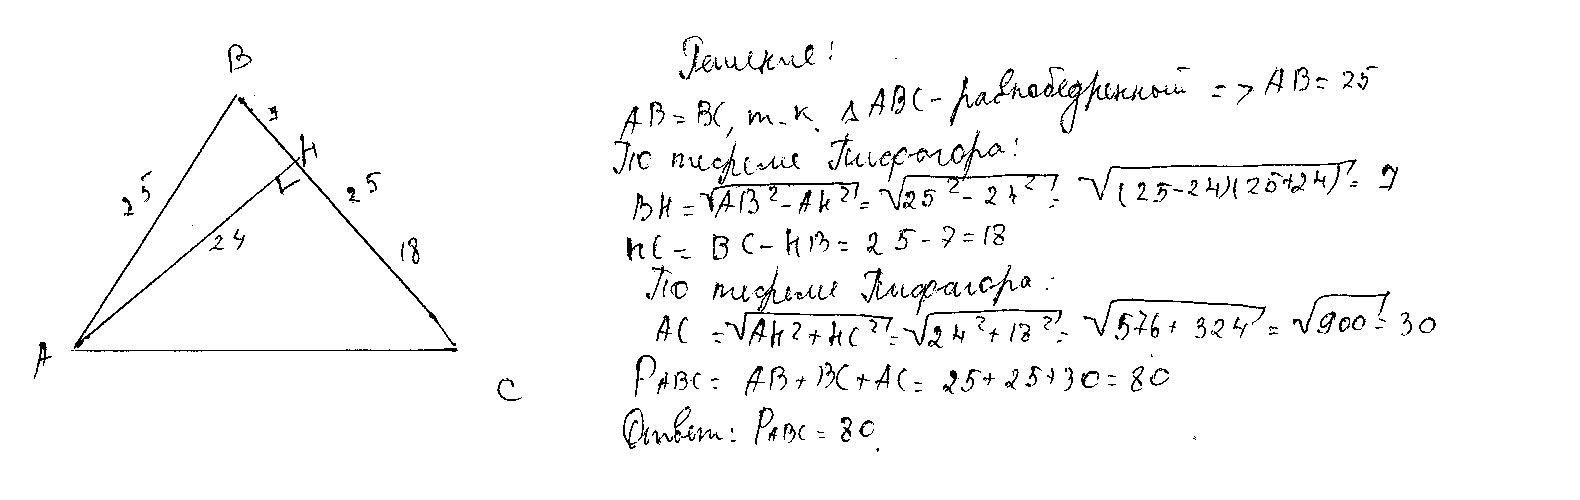 B
7
H
25
25
24
18
A
C
Решение:
AB = BC, т.к. △ABC - равнобедренный => AB = 25
По теореме Пифагора:
BH = √(AB² - AH²) = √(25² - 24²) = √((25-24)(25+24)) = 7
HC = BC - HB = 25 - 7 = 18
По теореме Пифагора:
AC = √(AH² + HC²) = √(24² + 18²) = √(576 + 324) = √900 = 30
PABC = AB + BC + AC = 25 + 25 + 30 = 80
Ответ: PABC = 80.